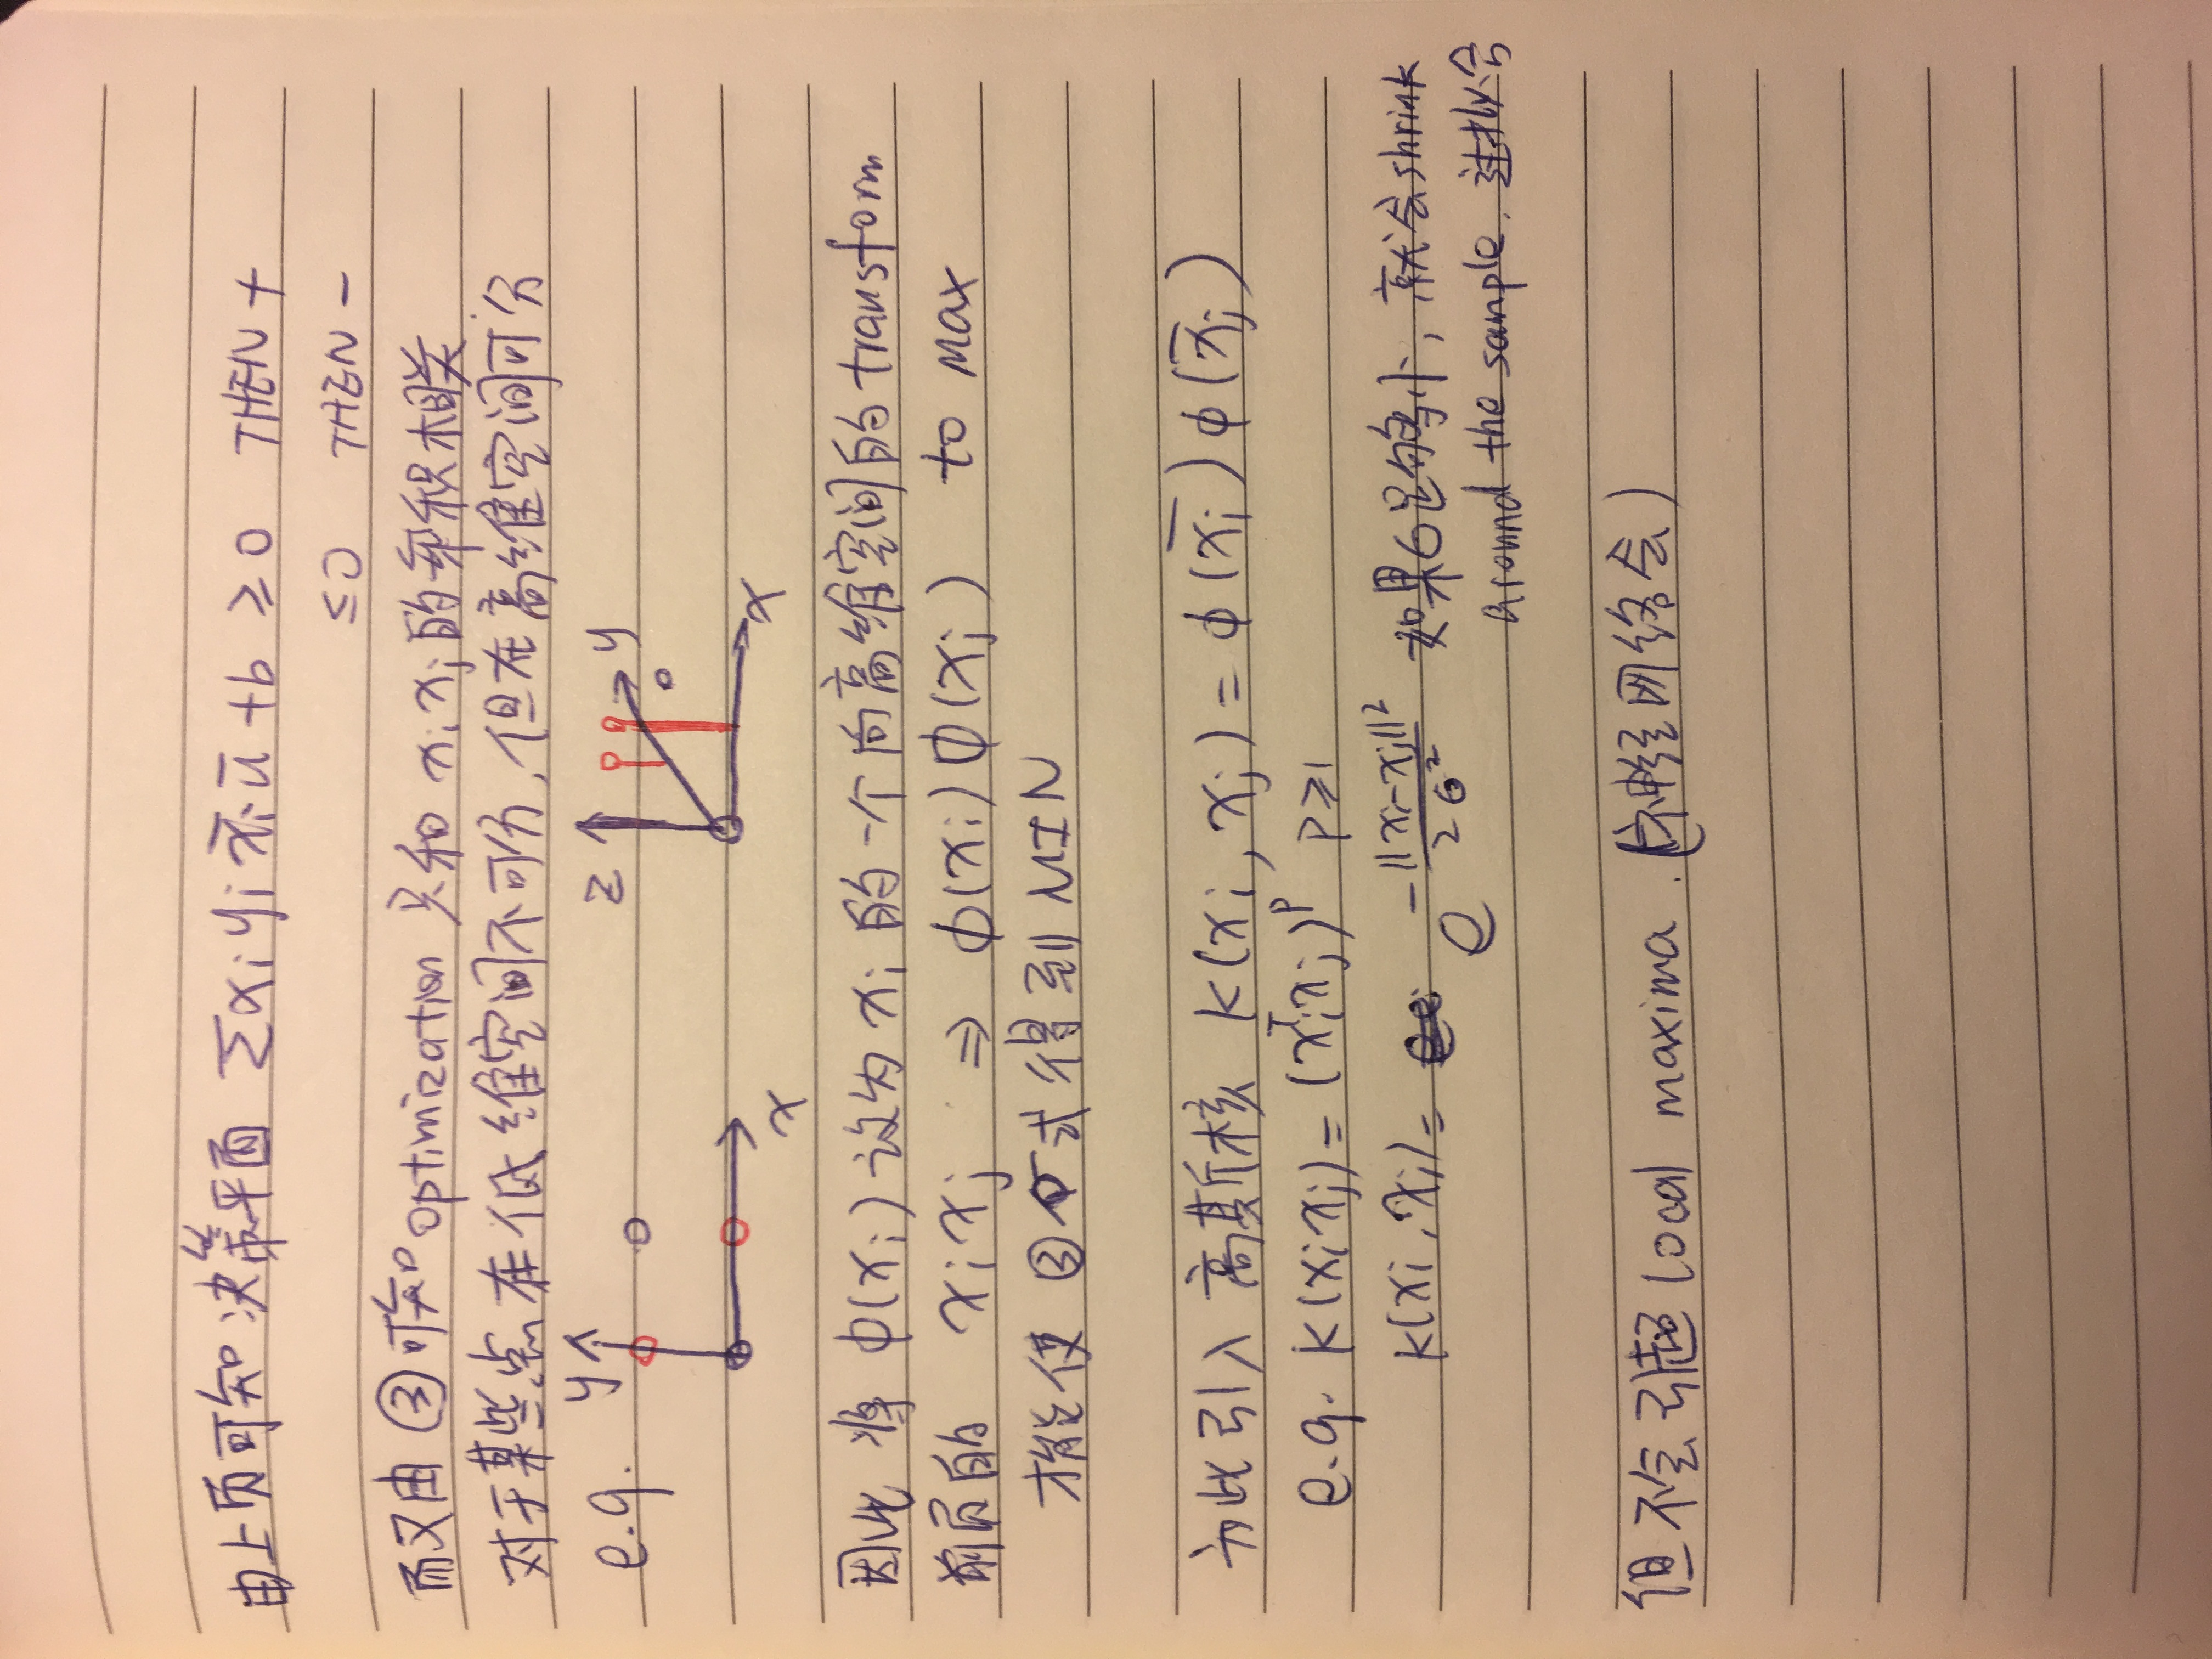 由上页可知 决策平面 ∑αᵢyᵢ x̄ᵢū +b ≥0 THEN +
≤0 THEN −
而又由③可知 optimization 只和 xᵢxⱼ的乘积相关.
对于某些点在低维空间不可分,但在高维空间可分
e.g. y x z y x
因此 将 φ(xᵢ)设为 xᵢ 的一个向高维空间的 transform
前页的 xᵢxⱼ ⇒ φ(xᵢ)φ(xⱼ) to max
才能使 ③ 式得到 MIN
为此引入 高斯核 K(xᵢ, xⱼ) = φ(x̄ᵢ)φ(x̄ⱼ)
e.g. K(xᵢxⱼ)= (xᵢᵀxⱼ)ᴾ P≥1
K(xᵢ,xⱼ)= e^(−||xᵢ−xⱼ||²/2σ²) 如果σ足够小, 就会shrink
around the sample. 过拟合
但不会引起 local maxima. (神经网络会)